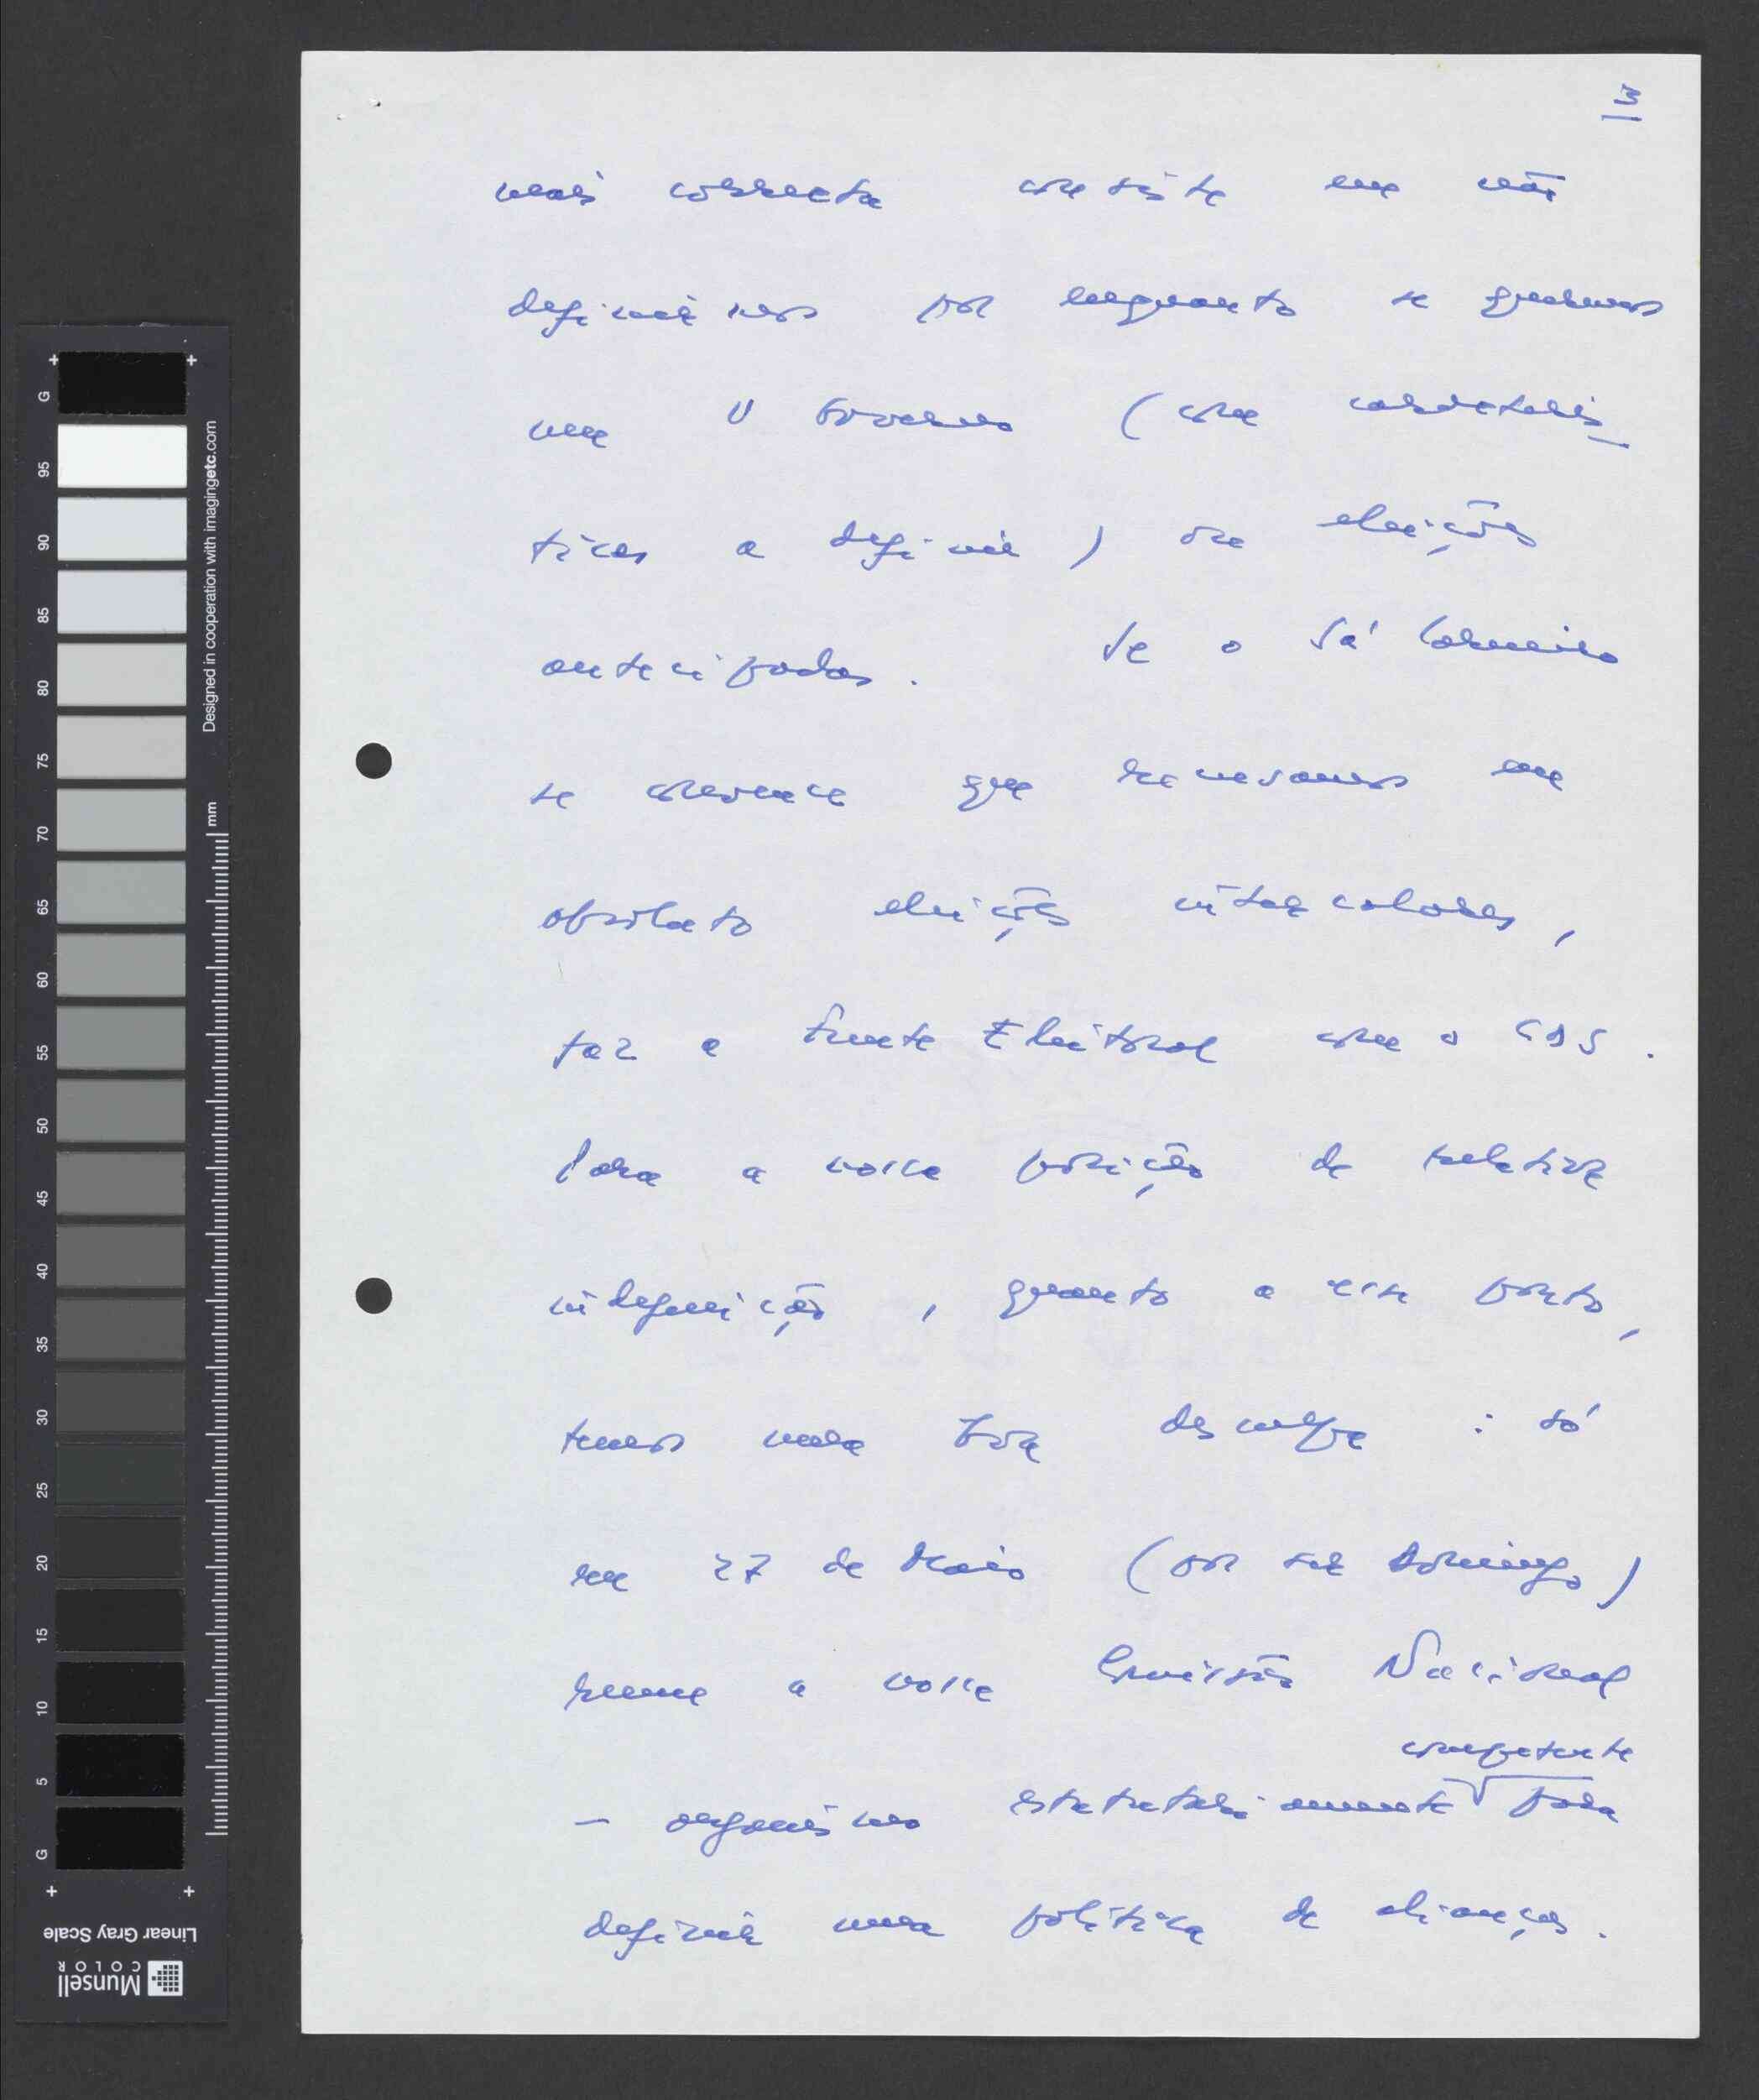 3
mais correcta consiste em não
definirmos por enquanto se queremos
um V Governo (com caracterís
ticas a definir) ou eleições
antecipadas. Se o Sá Carneiro
se convence que recusamos em
absoluto eleições intercalares,
faz a Frente Eleitoral com o CDS.
Para a nossa posição de relativa
indefinição, quanto a esse ponto,
temos uma boa desculpa: só
em 27 de Maio (por ser Domingo)
reune a nossa Comissão Nacional
competente
– organismo estatutariamente para
definir uma política de alianças.
G
95
90
85
80
75
70
65
60
55
50
45
40
35
30
25
20
15
10
5
G
Designed in cooperation with imagingetc.com
mm
Linear Gray Scale
Munsell
COLOR